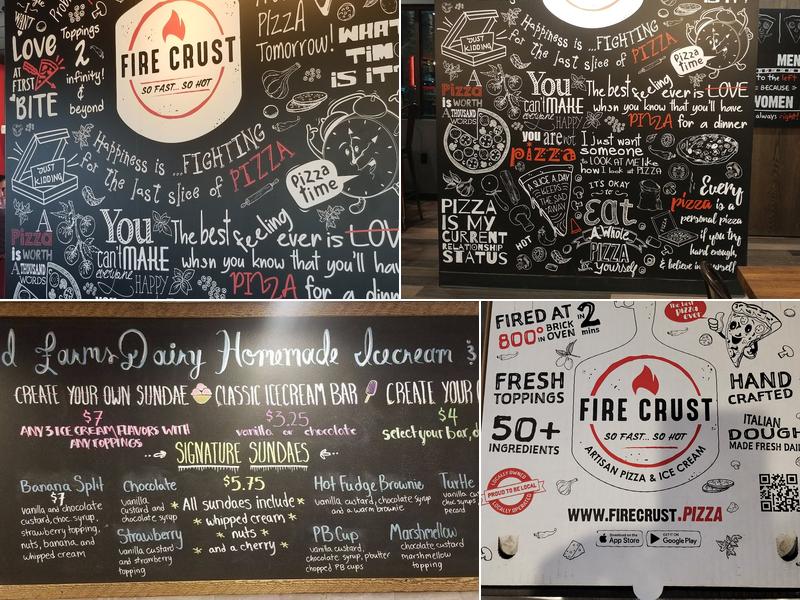 Love
AT
FIRST
BITE
Toppings
2
infinity!
&
beyond
FIRE CRUST
SO FAST... SO HOT
PIZZA
Tomorrow!
WHAT
TIM
IS IT
"JUST
KIDDING"
Happiness is ...FIGHTING
for the last slice of PIZZA
Pizza
time
Pizza
IS WORTH
A THOUSAND
WORDS
You
can't MAKE
everyone
HAPPY
The best feeling ever is LOV
when you know that you'll hav
PIZZA for a dinn
JUST
KIDDING
Happiness is ...FIGHTING
for the last slice of PIZZA
Pizza
time
Pizza
IS WORTH
A THOUSAND
WORDS
You
can't MAKE
everyone
HAPPY
The best feeling ever is LOVE
when you know that you'll have
PIZZA for a dinner
you are not
pizza
I Just want
someone
to LOOK AT ME like
how I look at PIZZA
A SLICE A DAY
KEEPS
THE SAD
AWAY
PIZZA
IS MY
CURRENT
RELATIONSHIP
STATUS
HOT
IT'S OKAY
to
eat
A Whole
PIZZA
by yourself
Every
pizza is a
personal pizza
if you try
hard enough,
& believe in yourself
MEN
to the left
BECAUSE
WOMEN
always right!
d Farms Dairy Homemade Icecream &
CREATE YOUR OWN SUNDAE
$7
ANY 3 ICE CREAM FLAVORS WITH
ANY TOPPINGS
CLASSIC ICECREAM BAR
$3.25
vanilla or chocolate
CREATE YOUR
$4
select your bar, d
SIGNATURE SUNDAES
$5.75
*All sundaes include*
* whipped cream *
* nuts *
and a cherry *
Banana Split
$7
vanilla and chocolate
custard, choc. syrup,
strawberry topping,
nuts, banana, and
whipped cream
Chocolate
vanilla
custard and
chocolate syrup
Strawberry
vanilla custard
and strawberry
topping
Hot Fudge Brownie
vanilla custard, chocolate syrup
and a warm brownie
PB Cup
vanilla custard,
chocolate syrup, pbutter
chopped PB cups
Turtle
vanilla cus
Marshmellow
chocolate custard
marshmellow
topping
FIRED AT
800°
BRICK
IN OVEN
IN 2
mins
FRESH
TOPPINGS
50+
INGREDIENTS
LOCALLY OWNED
PROUD TO BE LOCAL
LOCALLY OPERATED
FIRE CRUST
SO FAST... SO HOT
ARTISAN PIZZA & ICE CREAM
The best
PIZZA
ever!
HAND
CRAFTED
ITALIAN
DOUGH
MADE FRESH DAI
WWW.FIRECRUST.PIZZA
Download on the
App Store
GET IT ON
Google Play